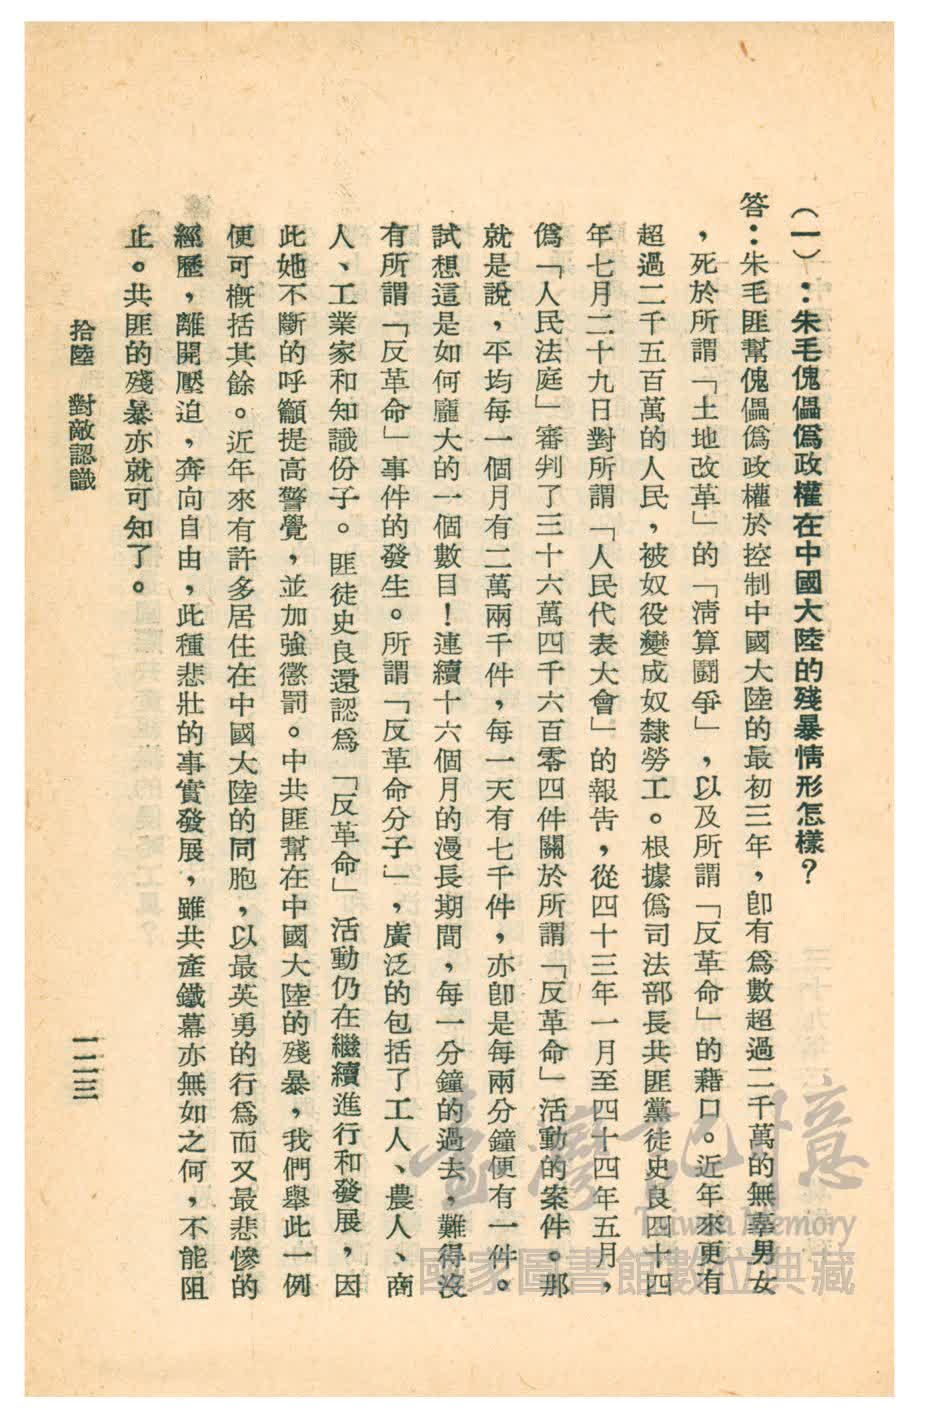 （一）：朱毛傀儡僞政權在中國大陸的殘暴情形怎樣？
答：朱毛匪幫傀儡僞政權於控制中國大陸的最初三年，卽有爲數超過二千萬的無辜男女
，死於所謂「土地改革」的「淸算鬪爭」，以及所謂「反革命」的藉口。近年來更有
超過二千五百萬的人民，被奴役變成奴隸勞工。根據僞司法部長共匪黨徒史良四十四
年七月二十九日對所謂「人民代表大會」的報告，從四十三年一月至四十四年五月，
僞「人民法庭」審判了三十六萬四千六百零四件關於所謂「反革命」活動的案件。那
就是說，平均每一個月有二萬兩千件，每一天有七千件，亦卽是每兩分鐘便有一件。
試想這是如何龐大的一個數目！連續十六個月的漫長期間，每一分鐘的過去，難得沒
有所謂「反革命」事件的發生。所謂「反革命分子」，廣泛的包括了工人、農人、商
人、工業家和知識份子。匪徒史良還認爲「反革命」活動仍在繼續進行和發展，因
此她不斷的呼籲提高警覺，並加強懲罰。中共匪幫在中國大陸的殘暴，我們舉此一例
便可概括其餘。近年來有許多居住在中國大陸的同胞，以最英勇的行爲而又最悲慘的
經歷，離開壓迫，奔向自由，此種悲壯的事實發展，雖共產鐵幕亦無如之何，不能阻
止。共匪的殘暴亦就可知了。
拾陸　對敵認識
一二三
臺灣記憶
Taiwan Memory
國家圖書館數位典藏